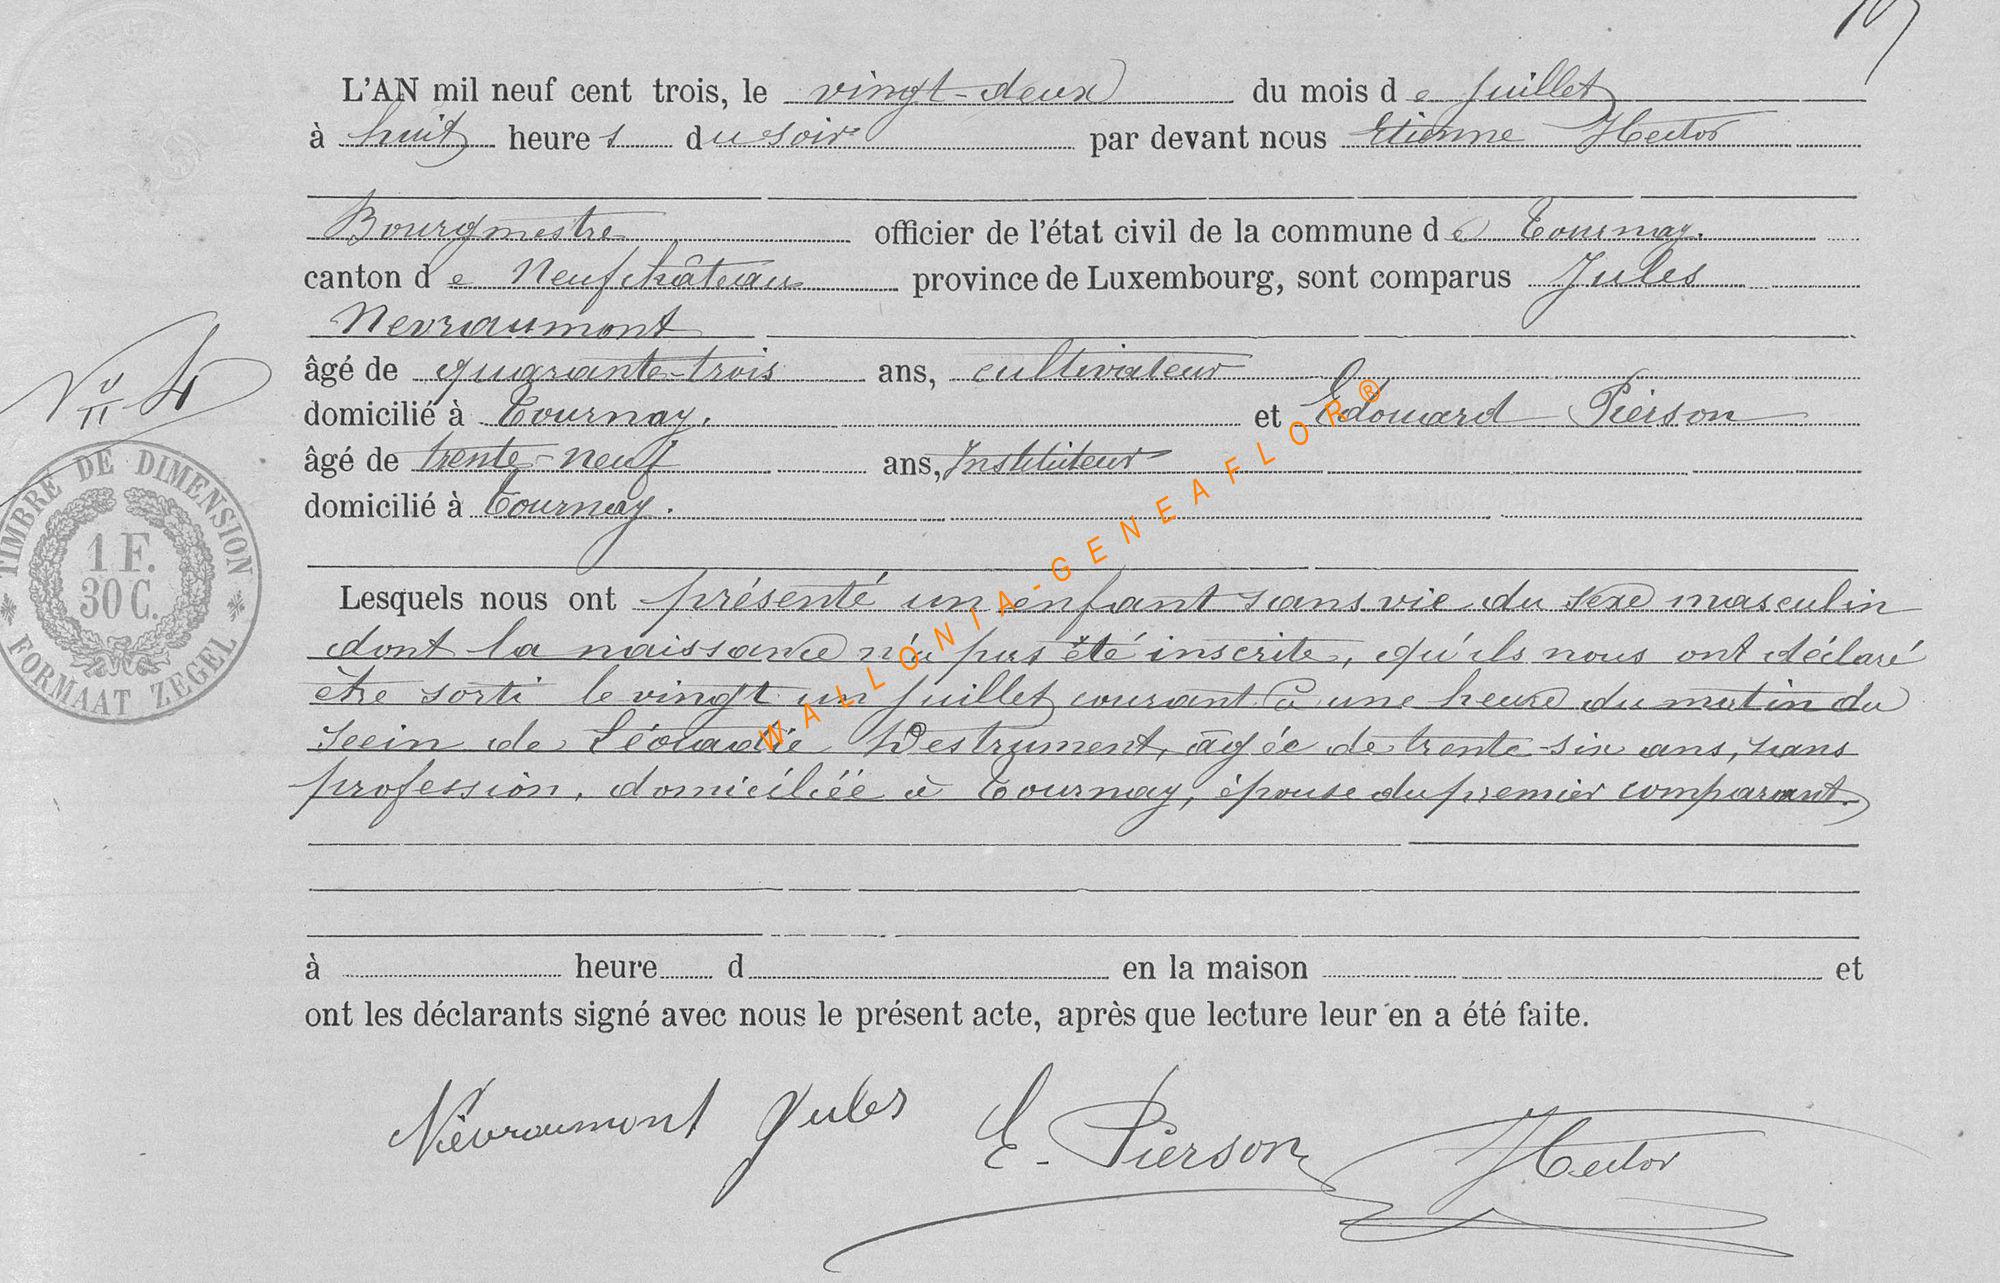 L'AN mil neuf cent trois, le vingt-deux du mois de Juillet
à huit heures du soir par devant nous Etienne Hector
Bourgmestre officier de l'état civil de la commune de Tournay.
canton de Neufchâteau province de Luxembourg, sont comparus Jules
Nevraumont
âgé de quarante-trois ans, cultivateur
domicilié à Tournay. et Edouard Pierson
âgé de trente-neuf ans, Instituteur
domicilié à Tournay.
Lesquels nous ont présenté un enfant sans vie du sexe masculin
dont la naissance n'a pas été inscrite, qu'ils nous ont déclaré
être sorti le vingt un juillet courant à une heure du matin du
sein de Léocadie Destrument, âgée de trente-six ans, sans
profession, domiciliée à Tournay, épouse du premier comparant.
à heure d en la maison et
ont les déclarants signé avec nous le présent acte, après que lecture leur en a été faite.
Névraumont Jules E. Pierson Hector
No 4
TIMBRE DE DIMENSION
1 F.
30 C.
FORMAAT ZEGEL
WALLONIA-GENEAFLOR®